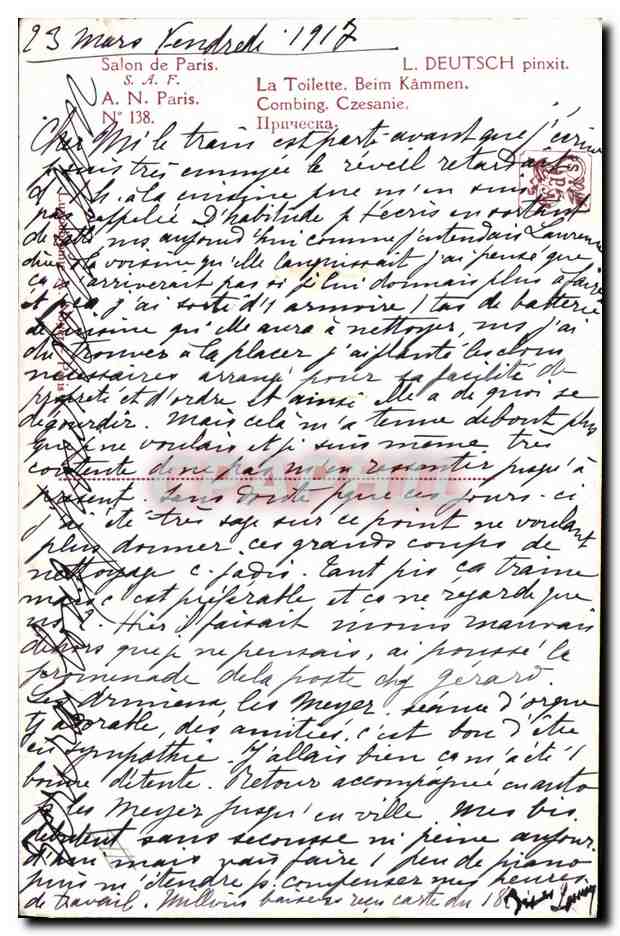 23 Mars Vendredi 1917
Salon de Paris.
S. A. F.
A. N. Paris.
N° 138.
L. DEUTSCH pinxit.
La Toilette. Beim Kämmen.
Combing. Czesanie.
Прическа.
Cher Mi le train est parti avant que j'écrive
suis très ennuyée le réveil retardait
à la cuisine que m'en suis
pas rappelée D'habitude p t'écris en sortant
de table ms aujourd'hui comme j'entendais Laurence
dire à la voisine qu'elle languissait j'ai pensé que
ça arriverait pas si je lui donnais plus à faire
et j'ai sorti d'1 armoire 1 tas de batterie
de cuisine qu'elle aura à nettoyer, ms j'ai
dû trouver à la placer j'ai planté les clous
nécessaires arrangé pour sa facilité de
propreté et d'ordre Et ainsi elle a de quoi se
dégourdir. Mais cela m'a tenue debout plus
que je ne voulais et je suis même très
contente de ne pas m'en ressentir jusqu'à
présent. Sans doute pque ces jours-ci
j'ai été très sage sur ce point ne voulant
plus donner ces grands coups de
nettoyage c. jadis. Tant pis ça traîne
mais c'est préférable et ça ne regarde que
ns. Hier il faisait moins mauvais
dehors que je ne pensais, ai poussé la
promenade de la poste chez Gérard.
les Meyer, séance d'orgue
des amitiés, c'est bon d'être
en sympathie. J'allais bien ça m'a été 1
bonne détente. Retour accompagnée en auto
p les Meyer jusqu'en ville. Mes bis
sans secousse ni peine aujour
d'hui mais vais faire 1 peu de piano
puis m'étendre p. compenser mes heures
de travail. Millions baisers reçu carte du 18